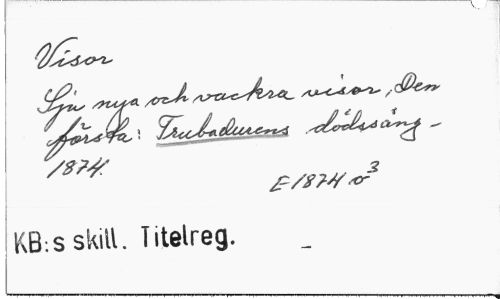 Visor
Sju nya och vackra visor, Den
första: Trubadurens dödssång -
1874.
E 1874 o³
KB:s skill. Titelreg. -